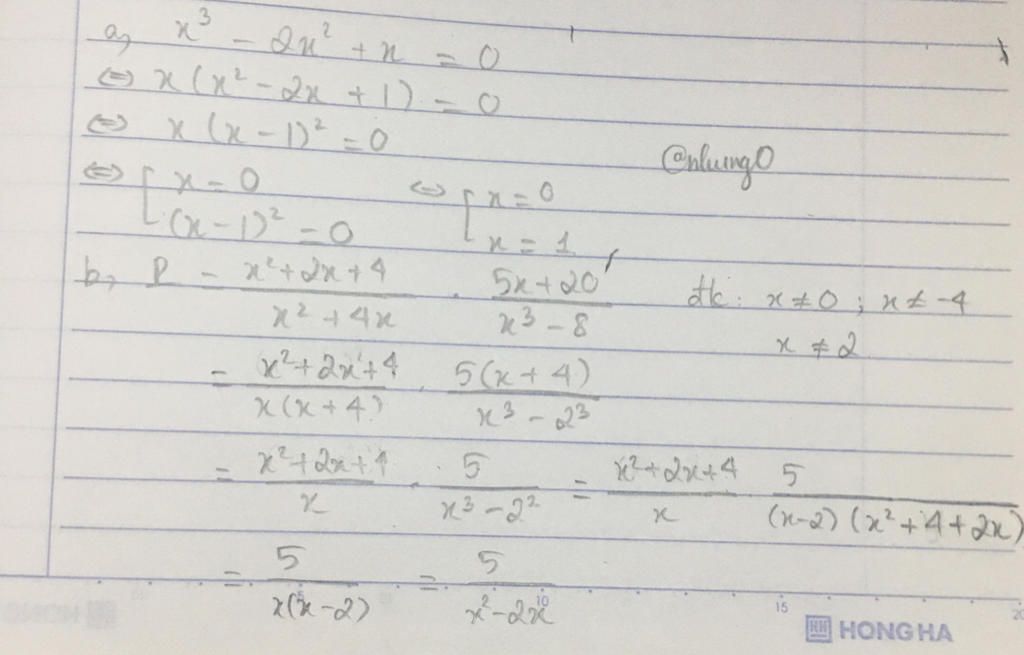 a, x³ - 2x² + x = 0
⇔ x(x² - 2x + 1) = 0
⇔ x(x - 1)² = 0
@nhung0
⇔ [ x = 0 ⇔ [ x = 0
(x - 1)² = 0 x = 1
b, P = (x² + 2x + 4)/(x² + 4x) . (5x + 20)/(x³ - 8) đk: x ≠ 0 ; x ≠ -4
x ≠ 2
= (x² + 2x + 4)/(x(x + 4)) . 5(x + 4)/(x³ - 2³)
= (x² + 2x + 4)/x . 5/(x³ - 2²) = (x² + 2x + 4)/x . 5/((x-2)(x² + 4 + 2x))
= 5/(x(x - 2)) = 5/(x² - 2x)
5 10 15 20
HONG HA